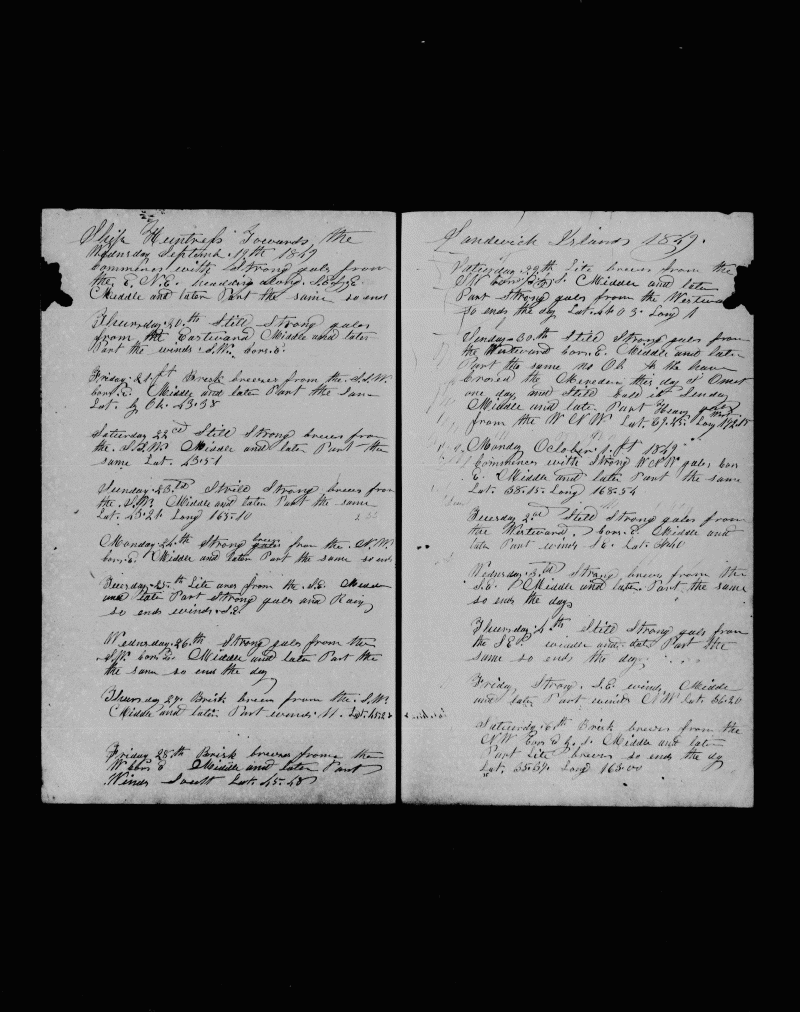 Ship Huntress Towards the
Wednsday Septemb. 19th 1849
Commences with Strong gales from
the E. N.E. heading along S.E by E
Middle and later Part the same so ends
Thursday 20.th Still Strong gales
from the Eastward Middle and later
Part the winds S.W. cors. E.
Friday 21.st Brisk breezes from the S.S.W.
cors. E. Middle and later Part the Same
Lat. by Ob. 43.38
Saturday 22nd Still Strong breezes from
the S.S.W. Middle and later Part the
same Lat. 43.51
Sunday 23.rd Still Strong breezes from
the S.W. Middle and later Part the same
Lat. 45.21 Long 165.10
Monday 24.th Strong breezes from the N.W.
cors. E. Middle and later Part the same so ends
Tuesday 25.th Lite ares from the S.E. Middle
and late Part Strong gales and Rainy
so ends winds S.E.
Wednsday 26.th Strong gales from the
S.W. Cors E. Middle and late Part the
the same so ends the day
Thursday 27. Brisk breeze from the S.W.
Middle and later Part winds W. Lat. 45.2
Friday 28.th Brisk breezes frome the
W Cors E Middle and later Part
Winds South Lat. 45.48
Sandwich Islands 1849.
Saturday 29th Lite breezes from the
SW Cors Middle and later
Part Strong gales from the Westward
so ends the day Lat. 44.03 Long
Sunday 30.th Still Strong gales from
the Westward cors. E. Middle and late
Part the same no Ob. to the
Crosed the Meredian this day
one day and Still call it Sunday
Middle and late Part Heavy gales
from the W N W Lat. Long
Monday October 1.st 1849
Commences with Strong W N W gales Cors
E. Middle and later Part the same
Lat. 38.15 Long 168.54
Tuesday 2nd Still Strong gales from
the Westward cors. E. Middle and
later Part winds S.E. Lat.
Wednsday 3.rd Strong breezes from the
S.E. Middle and later Part the same
so ends the day
Thursday 4.th Still Strong gales from
the S E. middle and late Part the
same so ends the day
Friday Strong S.E winds Middle
and later Part winds N.W. Lat. 36.20
Saturday 6th Brisk breezes from the
N.W Cors Middle and later
Part Lite breezes so ends the day
Lat. 35.34 Long 163.00